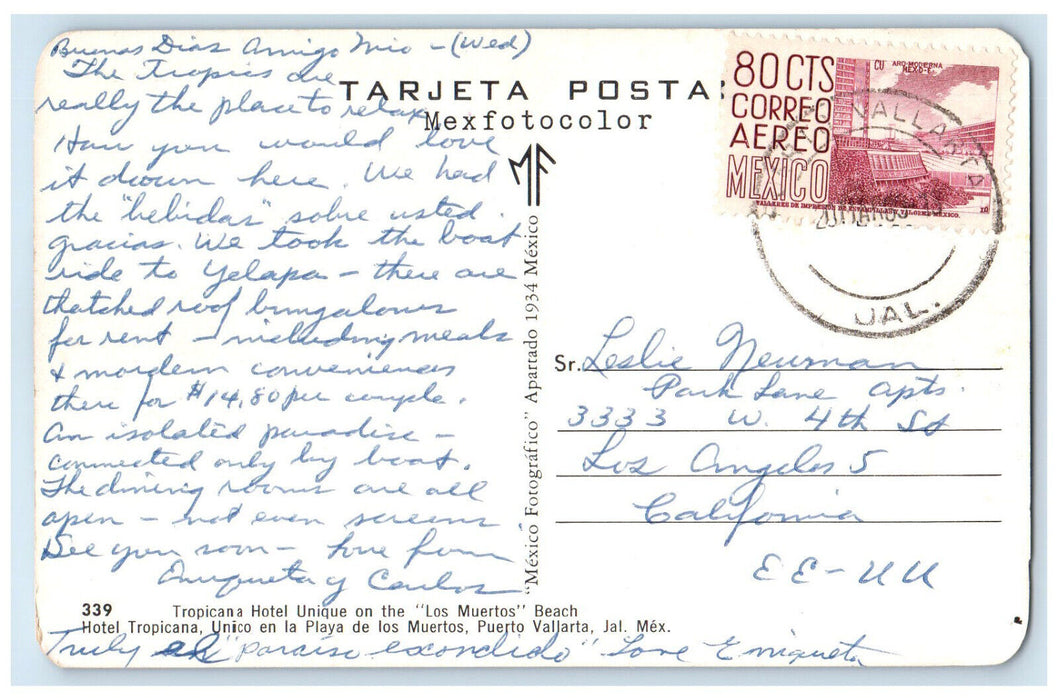 Buenas Dias Amigo Mio - (Wed)
The Tropics are
really the place to relax.
How you would love
it down here. We had
the "bebidas" sobre usted.
gracias. We took the boat
ride to Yelapa - there are
thatched roof bungalows
for rent - including meals
& mordern conveniences
there for $14.80 per couple.
An isolated paradise -
connected only by boat.
The dining rooms are all
open - not even screens.
See you soon - Love from
Enriqueta y Carlos
TARJETA POSTA
Mexfotocolor
MF
"México Fotográfico" Apartado 1934 México
80 CTS
CORREO
AEREO
MEXICO
CU ARQ-MODERNA
MEX-D-F.
TALLERES DE IMPRESION DE ESTAMPILLAS Y VALORES-MEXICO.
VALLARTA
JAL.
Sr. Leslie Newman
Park Lane Apts.
3333 W. 4th St
Los Angeles 5
California
EE-UU
339 Tropicana Hotel Unique on the "Los Muertos" Beach
Hotel Tropicana, Unico en la Playa de los Muertos, Puerto Vallarta, Jal. Méx.
Truly el "paraiso escondido" Love Enriqueta